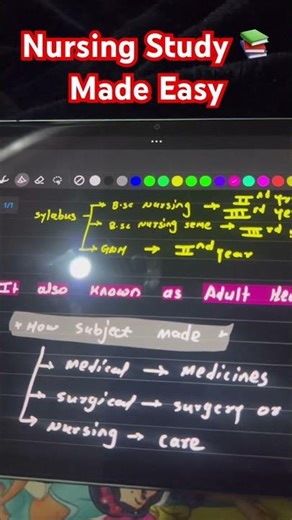 Nursing Study 📚
Made Easy
1/1
Sylabus → B.sc nursing → IInd yr
IIIrd year
→ B.sc nursing seme → IIIrd s
→ GNM → IInd year
It also known as Adult Hea
* How subject made *
→ medical → medicines
→ surgical → surgery or
→ nursing → care